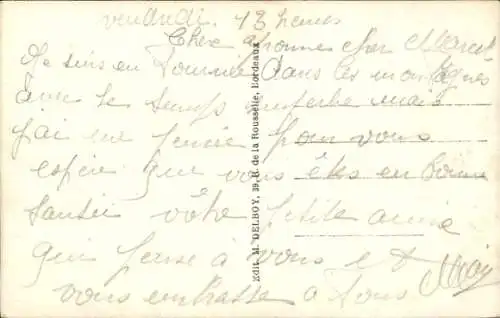 vendredi. 13 heures
Chère Yvonne cher Marcel
Je suis en Tournée dans les montagnes
avec le temps superbe mais
j'ai une pensée pour vous
espère que vous êtes en bonne
Santée vôtre petite amie
qui pense à vous et
vous embrasse a tous
Edit. M. DELBOY, 39, R. de la Rousselle, Bordeaux